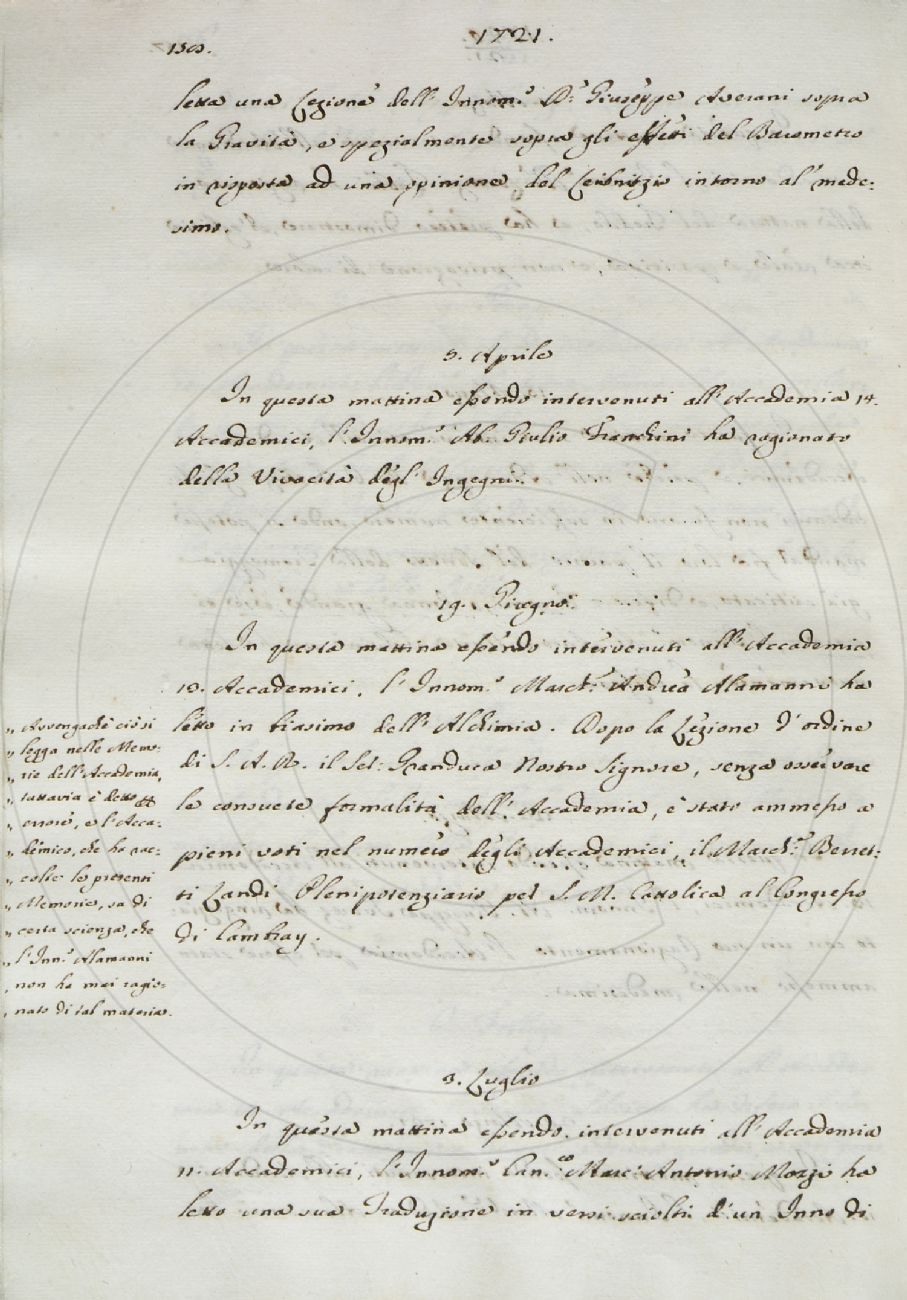 1721.
letta una Lezione dell' Innom.º D.r Giuseppe Averani sopra
la Gravità, e spezialmente sopra gli effetti del Barometro
in risposta ad una opinione del Leibnitzio intorno al mede:
simo.
5. Aprile
In questa mattina essendo intervenuti all' Accademia 14.
Accademici, l' Innom.º Ab. Giulio Franchini ha ragionato
della Vivacità degl' Ingegni.
19. Giugno.
In questa mattina essendo intervenuti all' Accademia
10. Accademici, l' Innom.º March.e Andrea Alamanni ha
letto in biasimo dell' Alchimia. Dopo la Lezione d' ordine
di S. A. R. il Ser: Granduca Nostro Signore, senza osservare
le consuete formalità dell' Accademia, è stato ammesso a
pieni voti nel numero degli Accademici il March.e Berret:
ti Landi, Plenipotenziario per S. M. Cattolica al Congresso
di Cambray.
„ Avvengachè ciò si
„ legga nelle Memo:
„ rie dell' Accademia,
„ tuttavia è detto
„ errore, e l' Acca:
„ demico, che ha rac:
„ colte le presenti
„ Memorie, sa di
„ certa scienza, che
„ l' Inn.º Alamanni
„ non ha mai ragio:
„ nato di tal materia.
3. Luglio
In questa mattina essendo intervenuti all' Accademia
11. Accademici, l' Innom.º Can.co Marc' Antonio Mozzi ha
letto una sua Traduzione in versi sciolti d' un Inno di